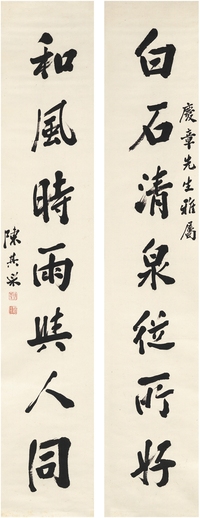 慶章先生雅屬
白石清泉從所好
和風時雨與人同
陳其采